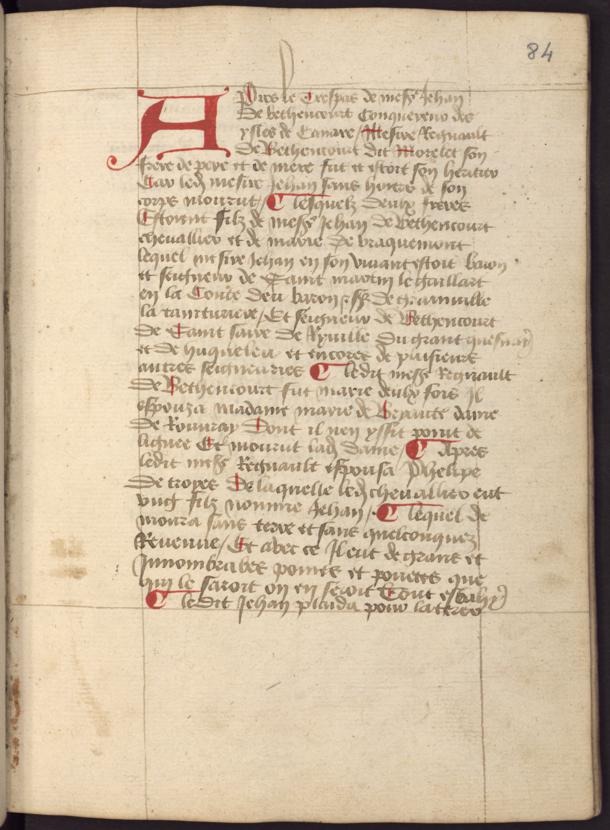 84
APres le Trespas de mess Jehan
De bethencourt Conquereur des
ysles de Canare / Messire Regnault
de Bethencourt dit Morelet son
frere de pere et de mere fut et estoit son heritier
Car led messire Jehan sans hoirs de son
corps mourut / Lesquelz deulx freres
Estoient filz de mess Jehan de Bethencourt
chevallier et de marie de braquemont
lequel messire Jehan en son vivant estoit baron
et seigneur de Saint martin le gaillart
en la Conte deu baron de grainville
la tainturiere / Et seigneur de Bethencourt
de Saint saire de Ryville du grant quesnay
et de huqueleu et encores de plusieurs
autres seigneuries Ledit mess Regnault
de Bethencourt fut marie deulx fois Il
espousa madame marie de Breaute dame
de Rouvray Dont il nen yssit point de
lignee Et mourut lad dame / Apres
ledit mess Regnault espousa Phelipe
de troyes De laquelle led chevallier eut
ung filz nomme Jehan / Lequel de
moura sans terre et sans quelconquez
Revenue / Et avec ce Il eut de grans et
Innombrables pertes et povretes que
qui le saroit on en seroit tout esbahy
Ledit Jehan plaida pour la terre